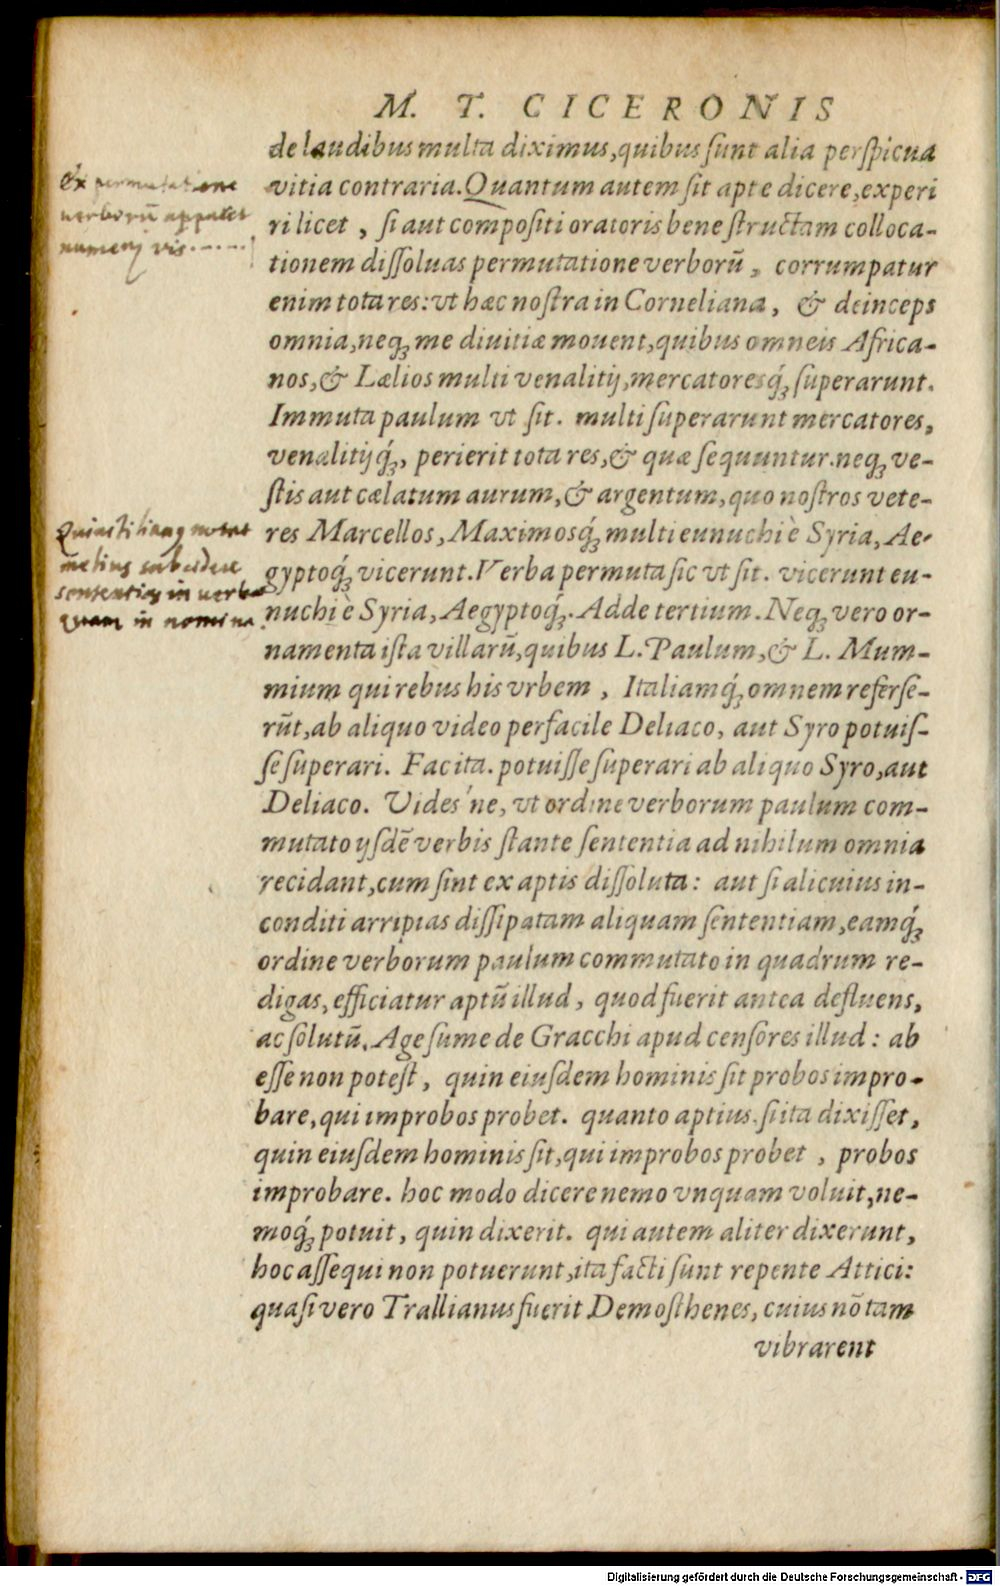 M. T. CICERONIS
de laudibus multa diximus, quibus sunt alia perspicua
vitia contraria. Quantum autem sit apte dicere, experi
ri licet, si aut compositi oratoris bene structam colloca-
tionem dissoluas permutatione verborū, corrumpatur
enim tota res: vt hæc nostra in Corneliana, & deinceps
omnia, neqꝫ me diuitiæ mouent, quibus omneis Africa-
nos, & Lælios multi venalitij, mercatoresqꝫ́ superarunt.
Immuta paulum vt sit. multi superarunt mercatores,
venalitijqꝫ́, perierit tota res, & quæ sequuntur. neqꝫ ve-
stis aut cælatum aurum, & argentum, quo nostros vete-
res Marcellos, Maximosqꝫ́ multi eunuchi è Syria, Ae-
gyptoqꝫ́ vicerunt. Verba permuta sic vt sit. vicerunt eu-
nuchi è Syria, Aegyptoqꝫ́. Adde tertium. Neqꝫ vero or-
namenta ista villarū, quibus L. Paulum, & L. Mum-
mium qui rebus his vrbem, Italiamqꝫ́ omnem referse-
rūt, ab aliquo video perfacile Deliaco, aut Syro potuis-
se superari. Facita. potuisse superari ab aliquo Syro, aut
Deliaco. Vides'ne, vt ordine verborum paulum com-
mutato ijsdē verbis stante sententia ad nihilum omnia
recidant, cum sint ex aptis dissoluta: aut si alicuius in-
conditi arripias dissipatam aliquam sententiam, eamqꝫ́
ordine verborum paulum commutato in quadrum re-
digas, efficiatur aptū illud, quod fuerit antea defluens,
ac solutū. Age sume de Gracchi apud censores illud: ab
esse non potest, quin eiusdem hominis sit probos impro-
bare, qui improbos probet. quanto aptius. si ita dixisset,
quin eiusdem hominis sit, qui improbos probet, probos
improbare. hoc modo dicere nemo vnquam voluit, ne-
moqꝫ́ potuit, quin dixerit. qui autem aliter dixerunt,
hoc assequi non potuerunt, ita facti sunt repente Attici:
quasi vero Trallianus fuerit Demosthenes, cuius nō tam
vibrarent
Ex permutatione
verborū apparet
numeri vis
Quinctilianus notat
melius subcidere
sententias in verba
quam in nomina.
Digitalisierung gefördert durch die Deutsche Forschungsgemeinschaft - DFG